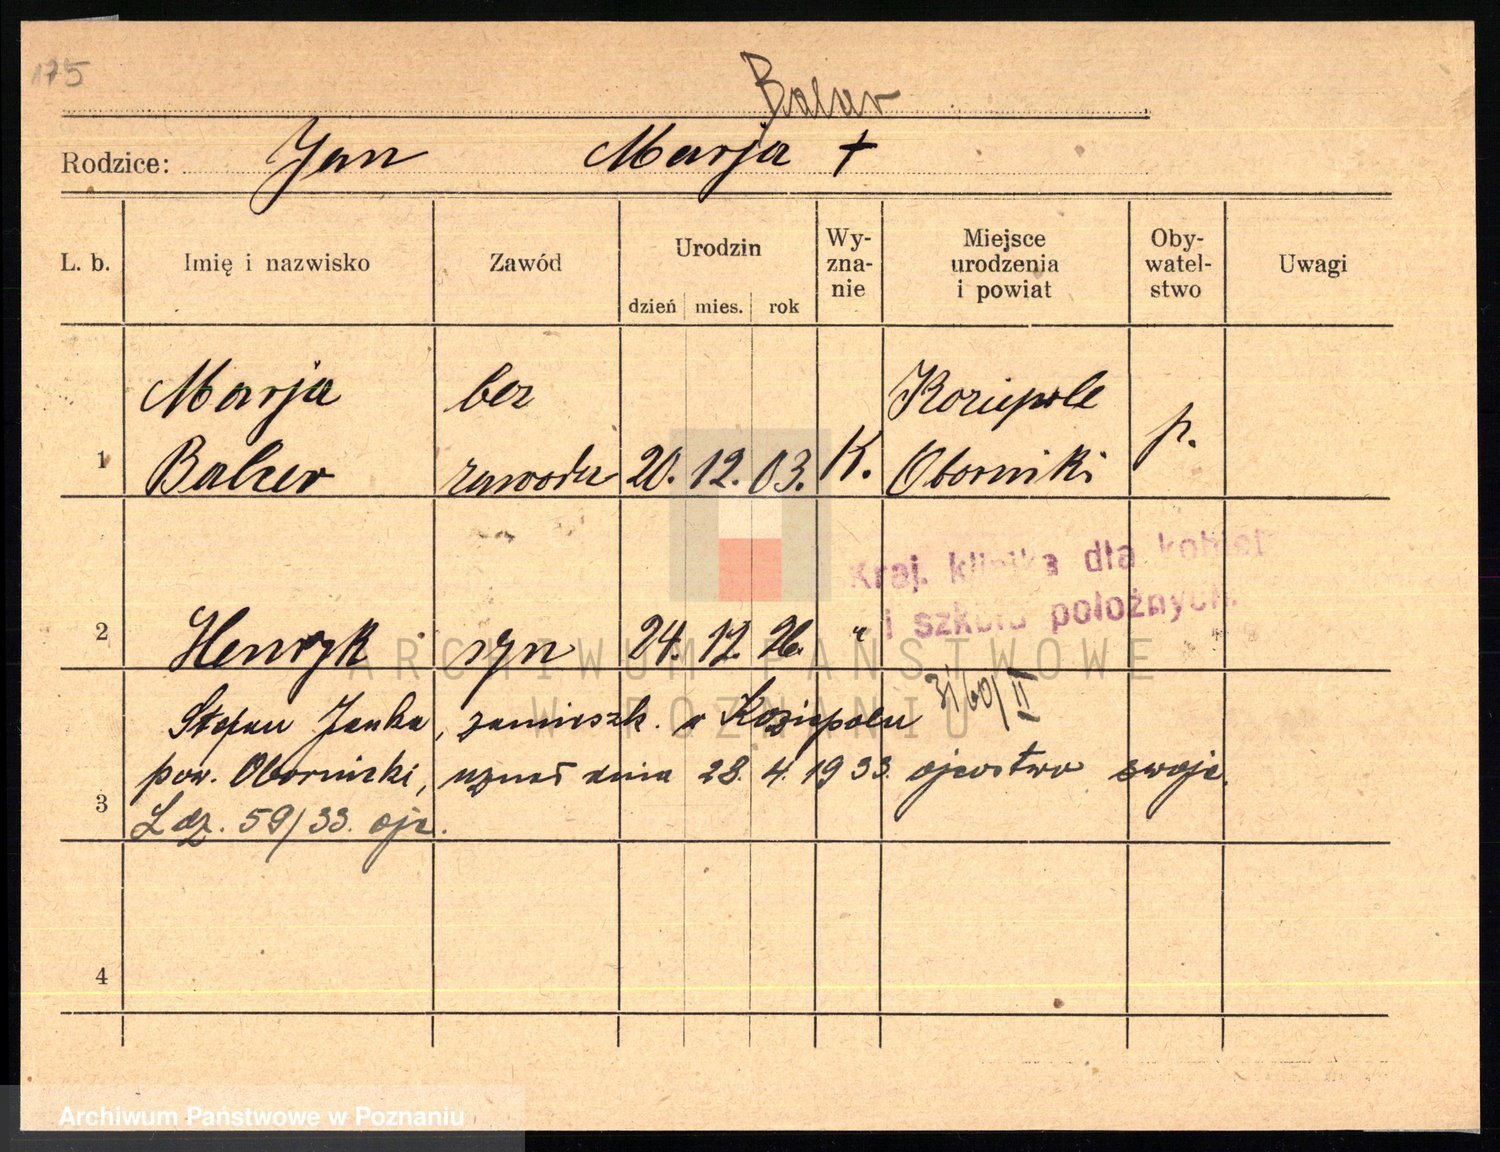 175
Balcer
Rodzice: Jan Marja +
L. b. Imię i nazwisko Zawód Urodzin dzień mies. rok Wy-zna-nie Miejsce urodzenia i powiat Oby-watel-stwo Uwagi
Marja bez Koziepole
1 Balcer zawodu 20. 12. 03. K. Oborniki p.
Kraj. klinika dla kobiet
i szkoła położnych.
2 Henryk syn 24. 12. 26. "
ARCHIWUM PAŃSTWOWE
W POZNANIU
31/60/II
Stefan Janka, zamieszk. w Koziepolu
pow. Obornicki, uznał dnia 28. 4. 1933. ojcostwo swoje.
3 L dz. 59/33. ojc.
4
Archiwum Państwowe w Poznaniu